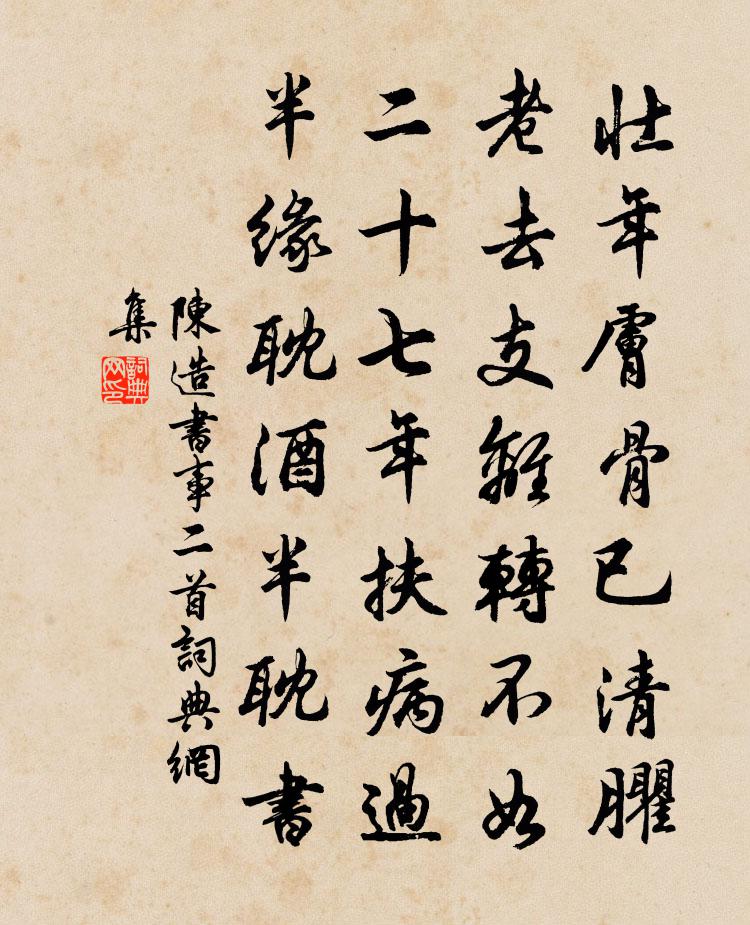 壯年膚骨已清臞
老去支離轉不如
二十七年扶病過
半緣耽酒半耽書
陳造書事二首詞典網
集
詞典
网印